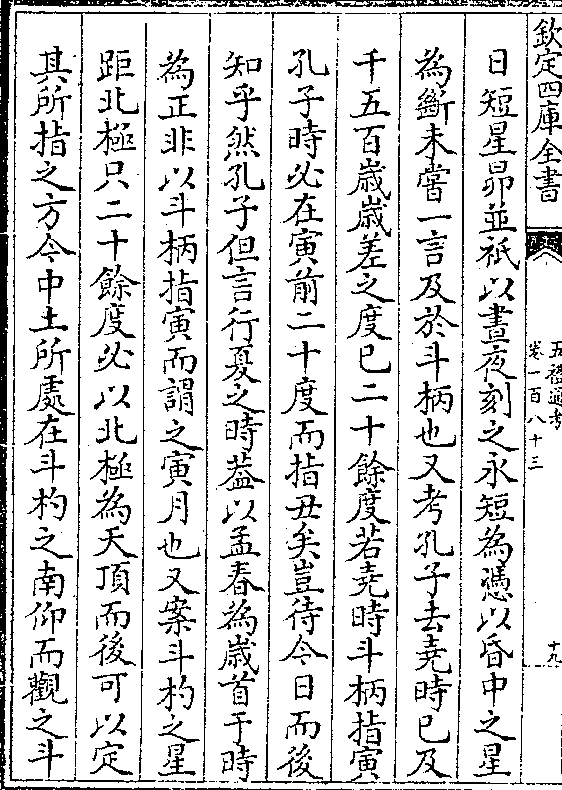 欽定四庫全書
五禮通考
卷一百八十三
十九
日短星昴並祇以晝夜刻之永短為憑以昏中之星
為斷未嘗一言及於斗柄也又考孔子去堯時已及
千五百歲歲差之度已二十餘度若堯時斗柄指寅
孔子時必在寅前二十度而指丑矣豈待今日而後
知乎然孔子但言行夏之時葢以孟春為歲首于時
為正非以斗柄指寅而謂之寅月也又案斗杓之星
距北極只二十餘度必以北極為天頂而後可以定
其所指之方今中土所處在斗杓之南仰而觀之斗